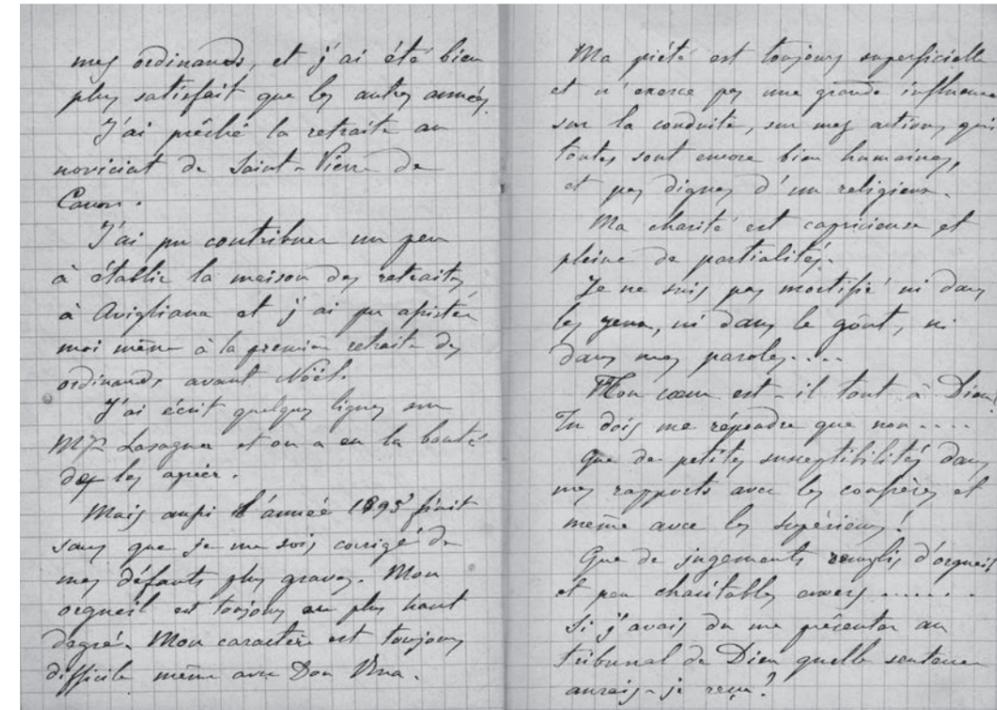 mes ordinands, et j'ai été bien
plus satisfait que les autres années.
J'ai prêché la retraite au
noviciat de Saint-Pierre de
Canon.
J'ai pu contribuer un peu
à établir la maison des retraites
à Avigliana et j'ai pu assister
moi même à la premier retraite des
ordinands avant Noël.
J'ai écrit quelques lignes sur
Mgr Lasagna et on a eu la bonté
de les agréer.
Mais aussi l'année 1895 finit
sans que je me sois corrigé de
mes défauts plus graves. Mon
orgueil est toujours au plus haut
degré. Mon caractère est toujours
difficile même avec Don Rua.
Ma piété est toujours superficielle
et n'exerce pas une grande influence
sur la conduite, sur mes actions qui
toutes sont encore bien humaines,
et pas dignes d'un religieux.
Ma charité est capricieuse et
pleine de partialités.
Je ne suis pas mortifié ni dans
les yeux, ni dans le goût, ni
dans mes paroles....
Mon cœur est-il tout à Dieu?
Je dois me répondre que non....
Que de petites susceptibilités dans
mes rapports avec les confrères et
même avec les supérieurs!
Que de jugements remplis d'orgueil
et peu charitables envers.......
Si j'avais du me présenter au
tribunal de Dieu quelle sentence
aurais-je reçue?